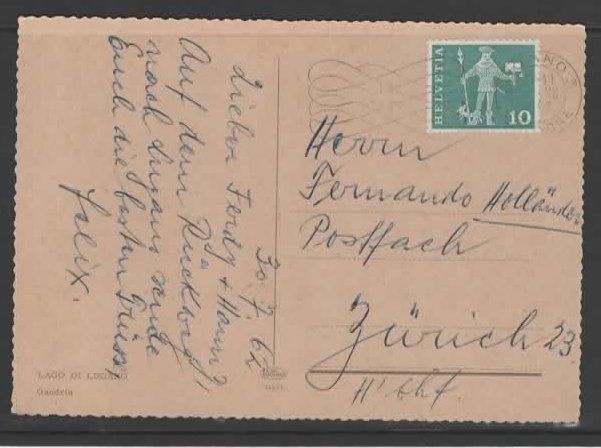 30. 7. 62
Lieber Ferdy + Hanni!
Auf dem Rückweg
nach Lugano sende
Euch die besten Grüsse
Felix.
HELVETIA
10
Herrn
Fernando Holländer
Postfach
Zürich 23
H'bhf.
LAGO DI LUGANO
Gandria